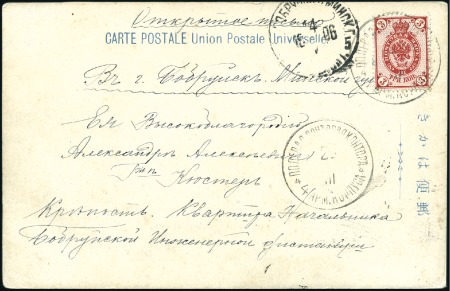 Открытое письмо
CARTE POSTALE Union Postale Universelle
Въ г. Бобруйскъ Минской губ.
きかは便郵
Ея Высокоблагородію
Александрѣ Алексѣевнѣ
Кюстеръ
Крѣпость Квартира Начальника
Бобруйской Инженерной дистанціи